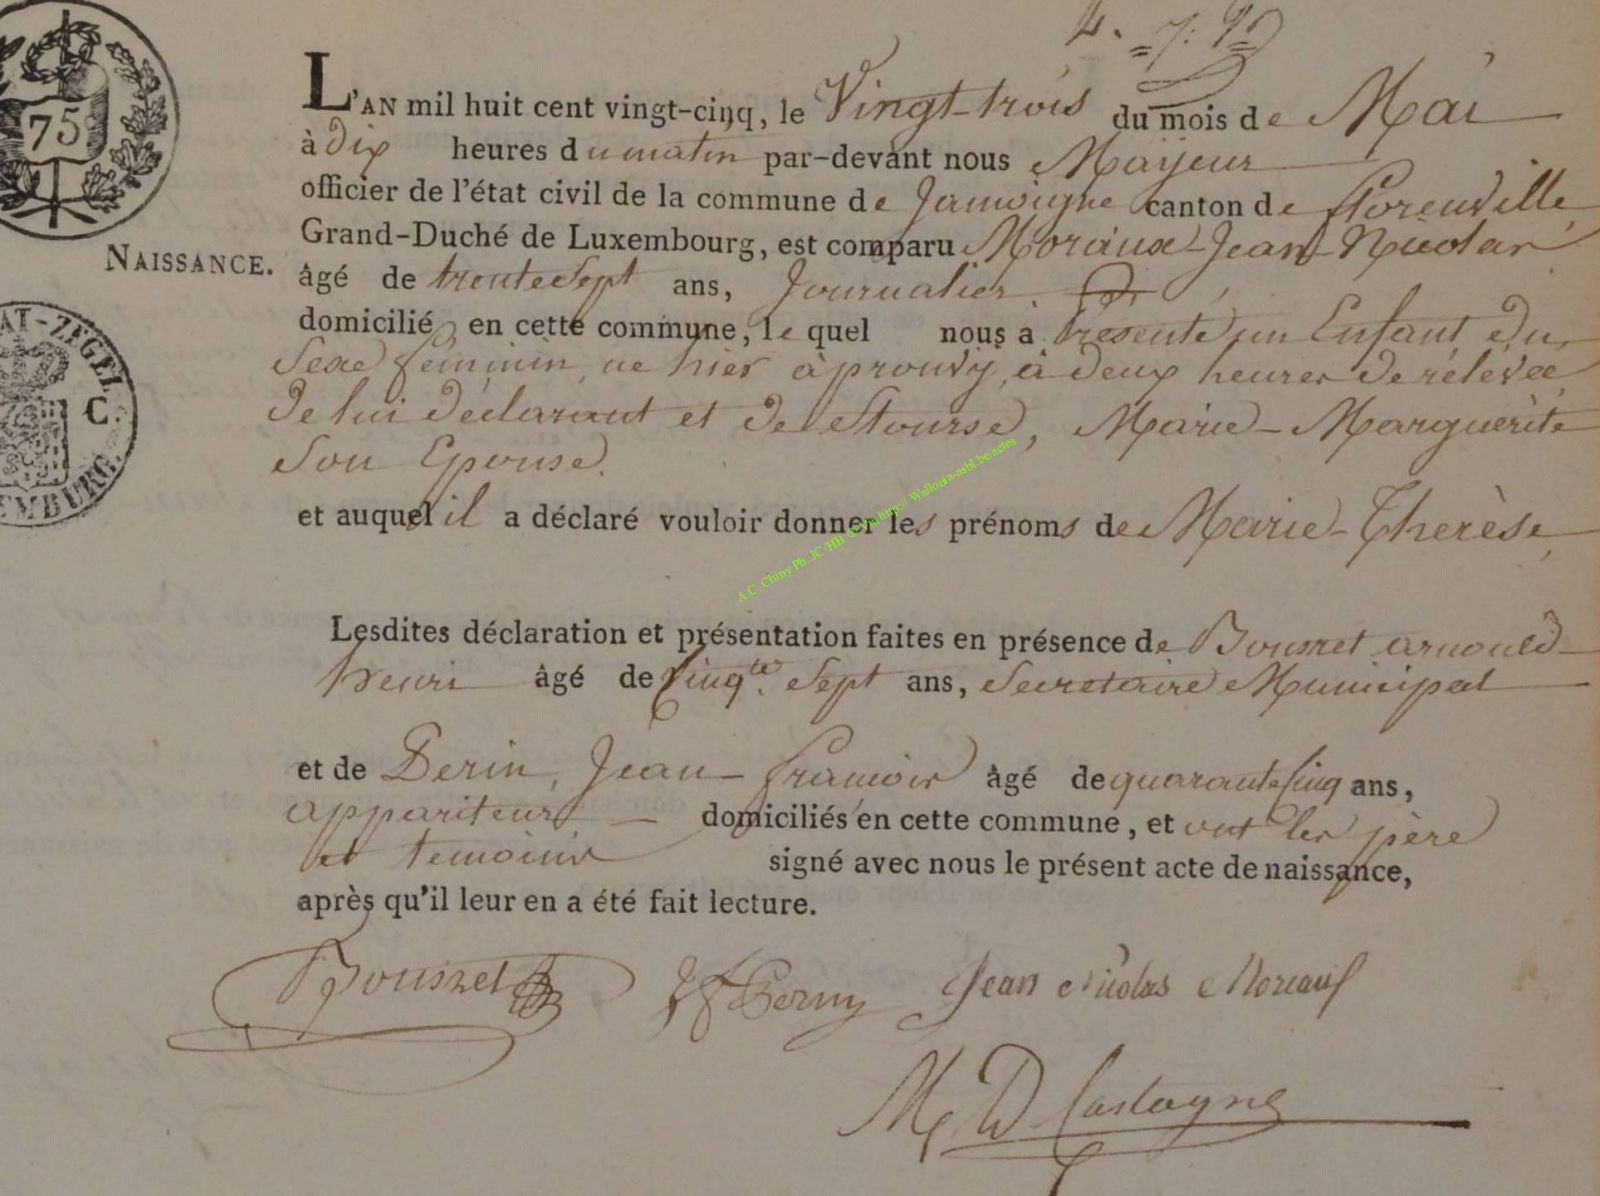 75
AT-ZEGEL
C
EMBURG.
NAISSANCE.
L'AN mil huit cent vingt-cinq, le Vingt-trois du mois de Mai
à dix heures du matin par-devant nous Maÿeur
officier de l'état civil de la commune de Jamoigne canton de florenville
Grand-Duché de Luxembourg, est comparu Moriaux Jean-Nicolas
âgé de trente Sept ans, Journalier,
domicilié en cette commune, le quel nous a présenté un Enfant du
Sexe féminin, né hier à prouvy, à deux heures de rélévée
de lui déclarant et de Stourse, Marie-Marguérite
Son Epouse.
et auquel il a déclaré vouloir donner les prénoms de Marie-Therèse,
A.C. Chiny Ph. JC/HB http:// Wallonia-asbl.be/actes
Lesdites déclaration et présentation faites en présence de Bousret arnould
henri âgé de Cinqte Sept ans, Secretaire Municipal
et de Perin, Jean-françois âgé de quarante Cinq ans,
appariteur domiciliés en cette commune, et ont les père
et temoins signé avec nous le présent acte de naissance,
après qu'il leur en a été fait lecture.
Jean Nicolas Moriaux
M D Castagne